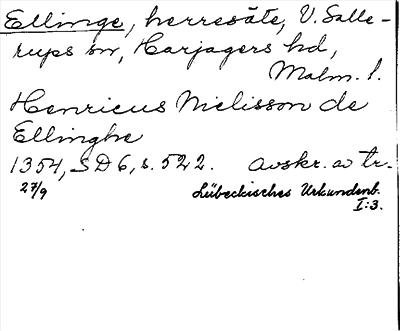 Ellinge, herresäte, V. Salle-
rups sn, Harjagers hd,
Malm. l.
Henricus Nielisson de
Ellinghe
1354, SD 6, s. 522. Avskr. av tr.
27/9 Lübeckisches Urkundenb.
I:3.